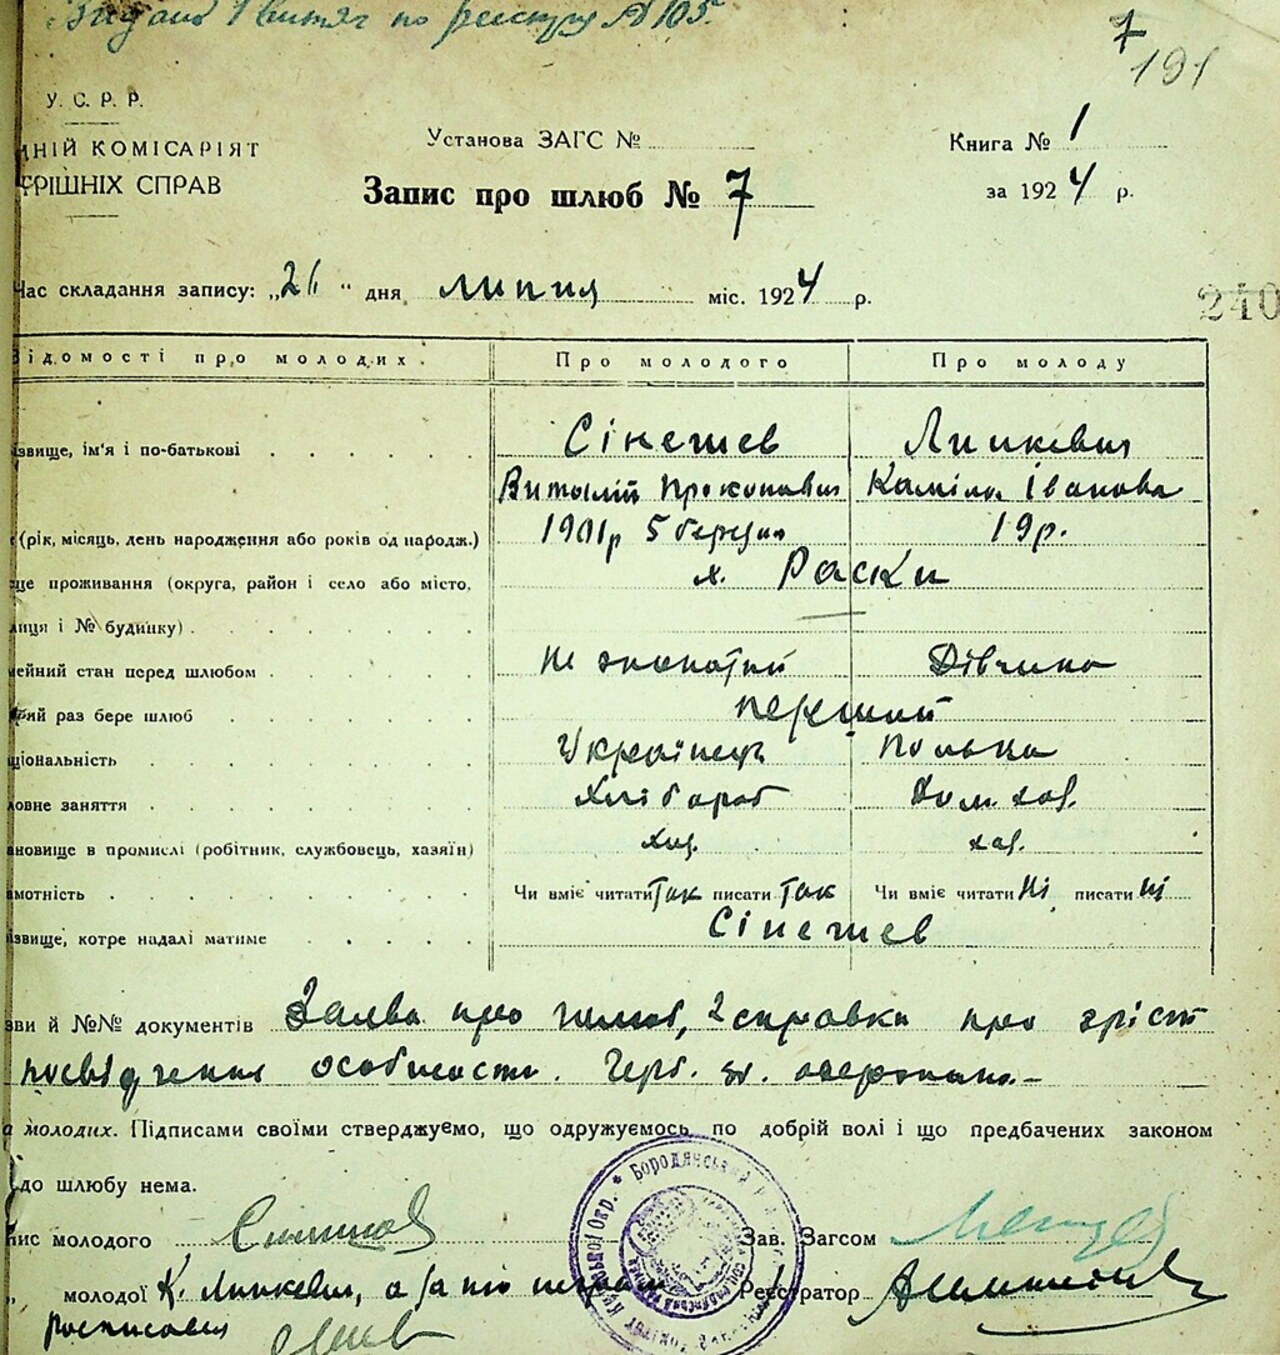 Видано 1 витяг по реєстру № 105.
7
191
У. С. Р. Р.
ДНІЙ КОМІСАРІЯТ
ТРІШНІХ СПРАВ
Установа ЗАГС №
Книга № 1
Запис про шлюб № 7
за 1924 р.
Час складання запису: „21" дня липня міс. 1924 р.
240
Відомості про молодих. Про молодого Про молоду
ізвище, ім'я і по-батькові Сінешев Линкевич
Виталій Прокопович Каміла Іванова
(рік, місяць, день народження або років од народж.) 1901р 5 березня 19р.
це проживання (округа, район і село або місто, х. Раски
лиця і № будинку)
мейний стан перед шлюбом Не жонатий Дівчина
рий раз бере шлюб перший
ціональність Українець Полька
ловне заняття Хлібороб Дом. хаз.
ановище в промислі (робітник, службовець, хазяїн) хаз. хаз.
амотність Чи вміє читати Так писати Так Чи вміє читати Ні писати ні
ізвище, котре надалі матиме Сінешев
зви й №№ документів Заява про шлюб, 2 справки про зріст
посвідчення особистости. Герб. зб. одержано.-
а молодих. Підписами своїми стверджуємо, що одружуємось по добрій волі і що предбачених законом
до шлюбу нема.
Бородянський
Київської Окр.
пис молодого Зав. Загсом
„ молодої К. Линкевич, а за нію Реєстратор
росписався